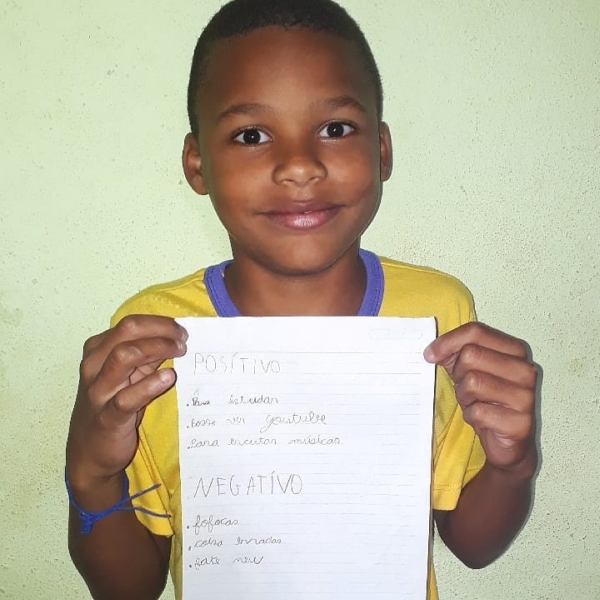 POSÍTIVO
. Para estudar
. Posso ver youtube
. Para escutar músicas
NEGATÍVO
. fofocas
. coisa erradas
. fake new